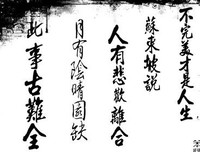 不完美才是人生
蘇東坡說
人有悲歡離合
月有陰晴圓缺
此事古難全